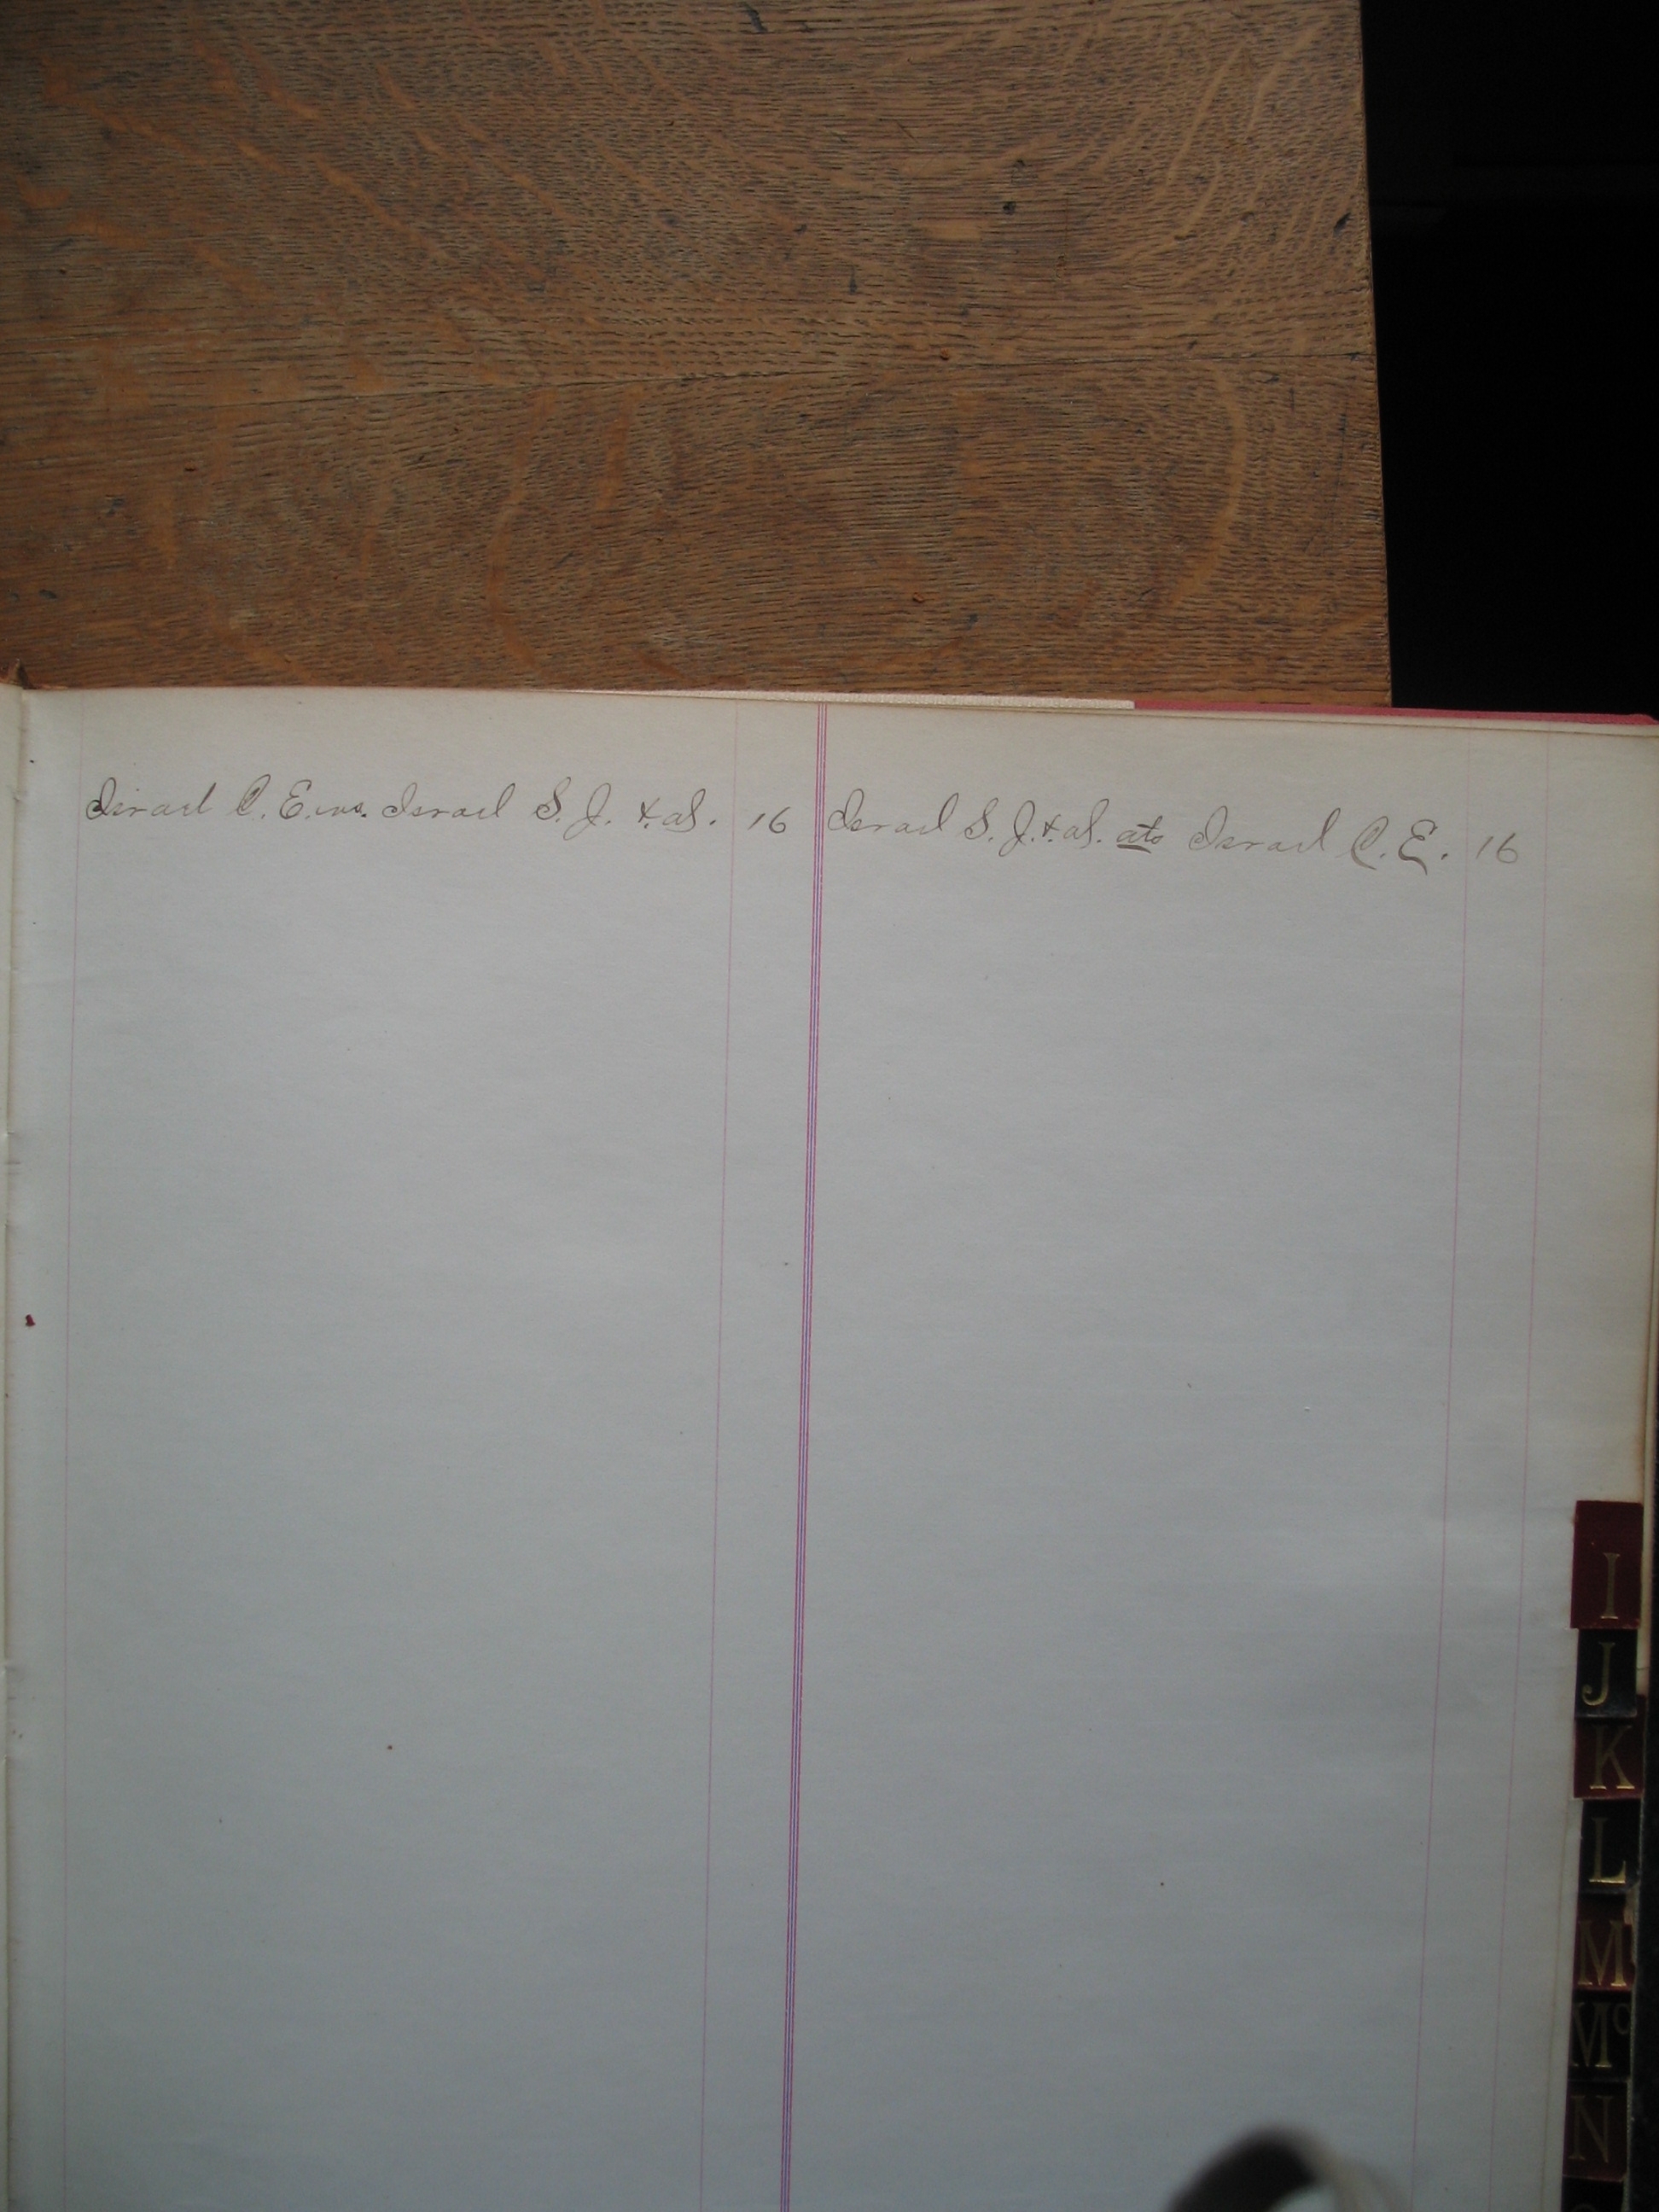 Israel C. E. vs. Israel S. J. & al. 16
Israel S. J. & al. ats Israel C. E. 16
I
J
K
L
M
Mc
N